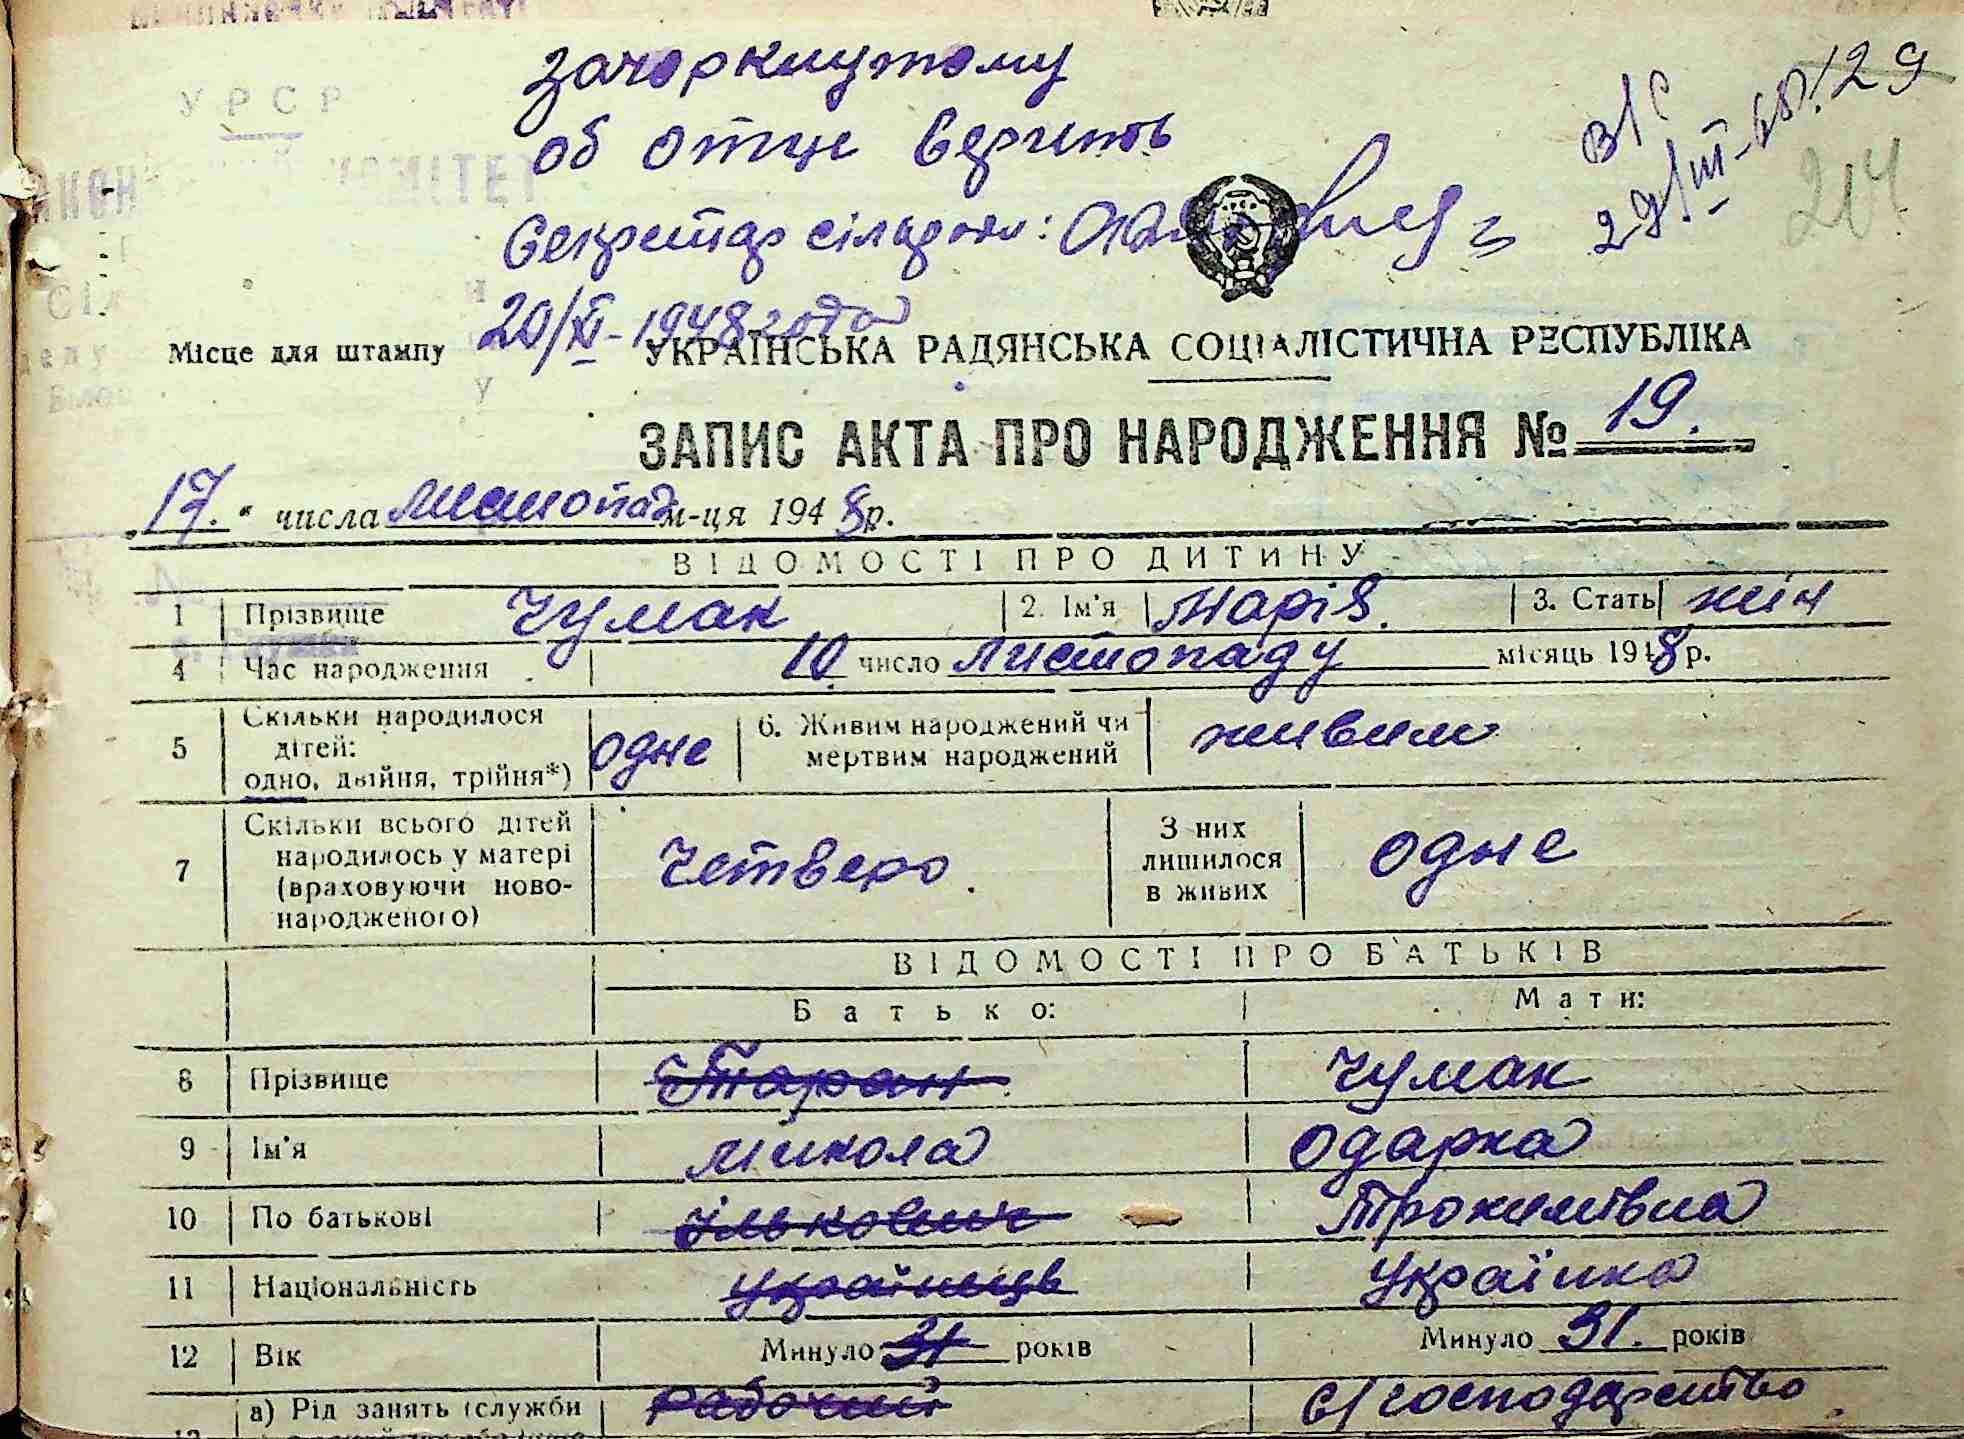 зачеркнутому
об отце верить
Секретар сільради:
20/XI-1948 года
В/С
29/III-68
129
204
УРСР
КОМІТЕТ
Місце для штампу
УКРАЇНСЬКА РАДЯНСЬКА СОЦІАЛІСТИЧНА РЕСПУБЛІКА
ЗАПИС АКТА ПРО НАРОДЖЕННЯ № 19.
„17." числа листопад м-ця 1948 р.
ВІДОМОСТІ ПРО ДИТИНУ
1 Прізвище Чумак 2. Ім'я Марія. 3. Стать жін
4 Час народження 10 число листопаду місяць 1948 р.
5 Скільки народилося дітей: одно, двійня, трійня*) одне 6. Живим народжений чи мертвим народжений живим
7 Скільки всього дітей народилось у матері (враховуючи новонародженого) четверо. З них лишилося в живих одне
ВІДОМОСТІ ПРО БАТЬКІВ
Батько: Мати:
8 Прізвище Таран Чумак
9 Ім'я Микола Одарка
10 По батькові Ількович Трохимівна
11 Національність українець українка
12 Вік Минуло 31 років Минуло 31. років
а) Рід занять (служби Рабочий с/господарство